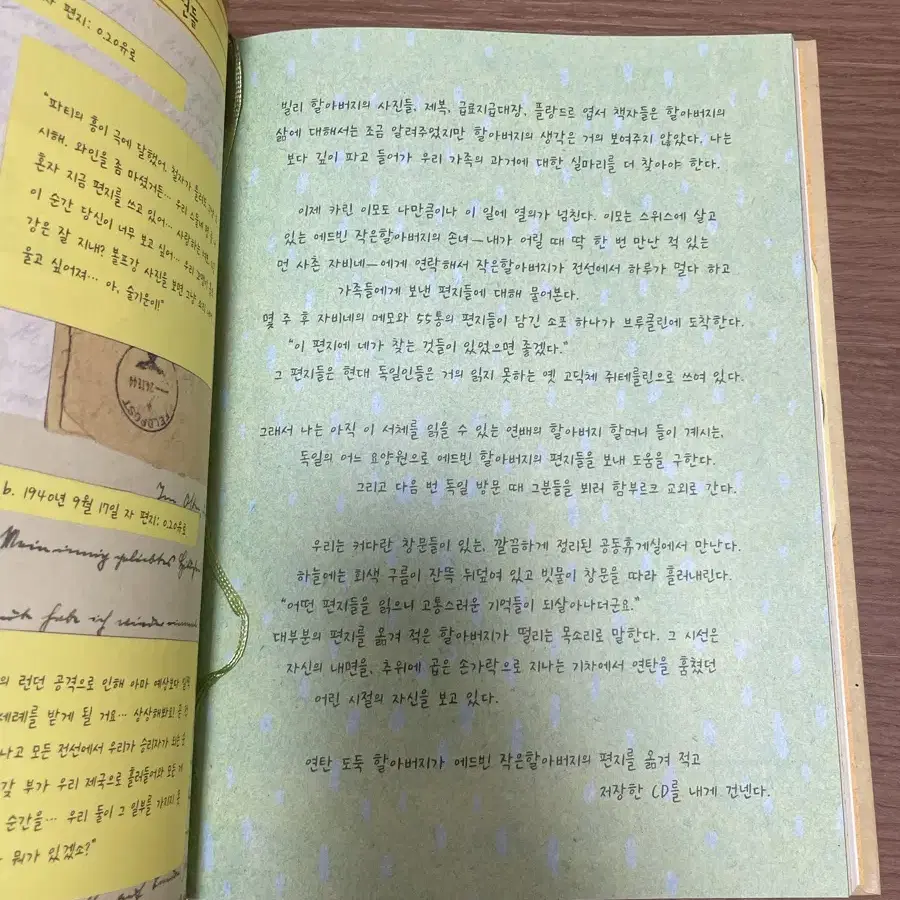 인들
자 편지: 0.20유로
"파티의 흥이 극에 달했어.
시해. 와인을 좀 마셨거든... 우리
혼자 지금 편지를 쓰고 있어... 사랑하는
이 순간 당신이 너무 보고 싶어... 우리
강은 잘 지내? 볼프강 사진을 보면 그냥
울고 싶어져... 아, 술기운이!"
FELDPOST
b. 1940년 9월 17일 자 편지: 0.20유로
Im Osten
Mein innig geliebtes
habe ich wieder einmal
의 런던 공격으로 인해 아마 예상보다
세례를 받게 될 거요... 상상해봐요!
나고 모든 전선에서 우리가 승리자가 되는
갖 부가 우리 제국으로 흘러들어와 모든 게
순간을... 우리 둘이 그 일부를 가지지 못
뭐가 있겠소?"
빌리 할아버지의 사진들, 제복, 급료지급대장, 플랑드르 엽서 책자들은 할아버지의
삶에 대해서는 조금 알려주었지만 할아버지의 생각은 거의 보여주지 않았다. 나는
보다 깊이 파고 들어가 우리 가족의 과거에 대한 실마리를 더 찾아야 한다.
이제 카린 이모도 나만큼이나 이 일에 열의가 넘친다. 이모는 스위스에 살고
있는 에드빈 작은할아버지의 손녀—내가 어릴 때 딱 한 번 만난 적 있는
먼 사촌 자비네—에게 연락해서 작은할아버지가 전선에서 하루가 멀다 하고
가족들에게 보낸 편지들에 대해 물어본다.
몇 주 후 자비네의 메모와 55통의 편지들이 담긴 소포 하나가 브루클린에 도착한다.
"이 편지에 네가 찾는 것들이 있었으면 좋겠다."
그 편지들은 현대 독일인들은 거의 읽지 못하는 옛 고딕체 쥐테를린으로 쓰여 있다.
그래서 나는 아직 이 서체를 읽을 수 있는 연배의 할아버지 할머니 들이 계시는,
독일의 어느 요양원으로 에드빈 할아버지의 편지들을 보내 도움을 구한다.
그리고 다음 번 독일 방문 때 그분들을 뵈러 함부르크 교외로 간다.
우리는 커다란 창문들이 있는, 깔끔하게 정리된 공동휴게실에서 만난다.
하늘에는 회색 구름이 잔뜩 뒤덮여 있고 빗물이 창문을 따라 흘러내린다.
"어떤 편지들을 읽으니 고통스러운 기억들이 되살아나더군요."
대부분의 편지를 옮겨 적은 할아버지가 떨리는 목소리로 말한다. 그 시선은
자신의 내면을, 추위에 곱은 손가락으로 지나는 기차에서 연탄을 훔쳤던
어린 시절의 자신을 보고 있다.
연탄 도둑 할아버지가 에드빈 작은할아버지의 편지를 옮겨 적고
저장한 CD를 내게 건넨다.